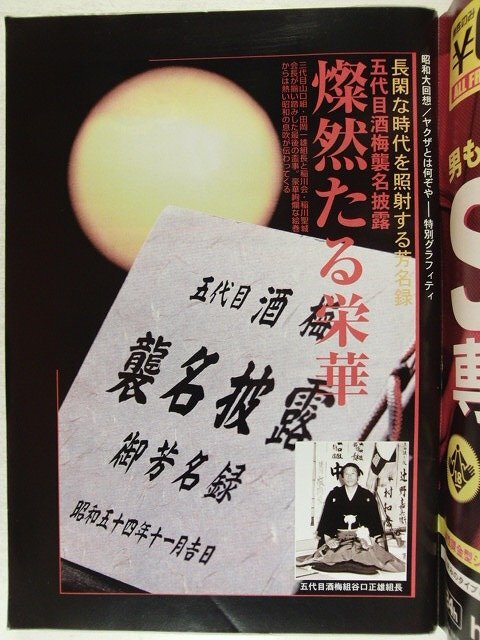 昭和大回想/ヤクザとは何ぞや──特別グラフィティ
長閑な時代を照射する芳名録
五代目酒梅襲名披露
燦然たる栄華
三代目山口組・田岡一雄組長と稲川会・稲川聖城
会長が揃い踏みした最後の盃事。豪華絢爛な絵巻
からは熱い昭和の息吹が伝わってくる
五代目 酒梅
襲名披露
御芳名録
昭和五十四年十一月吉日
中
五代目酒梅組谷口正雄組長
ALL F
男も
S
専
18